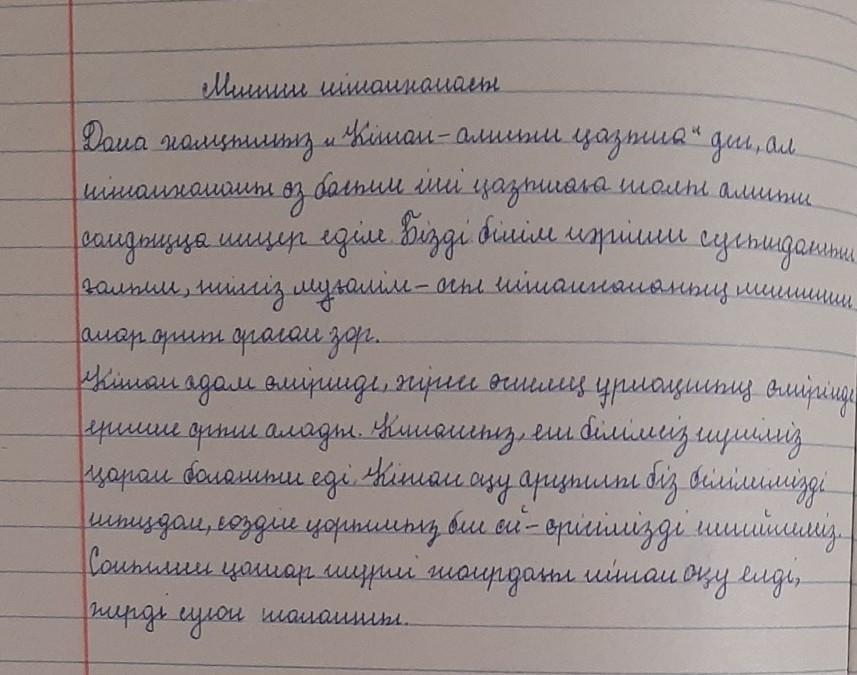 Менің кітапханам
Дана халқымыз „Кітап – алтын қазына" деп, ал
кітапхананы өз басым іші қазынаға толы алтын
сандыққа теңер едім. Бізді білім нәрімен сусындатып
жатқан, тілсіз мұғалім – осы кітапхананың менің
алар орны орасан зор.
Кітап адам өмірінде, және өскелең ұрпақтың өмірінде
ерекше орын алады. Кітапсыз, еш білімсіз күніміз
қараң болатын еді. Кітап оқу арқылы біз білімімізді
шыңдап, сөздік қорымыз бен ой-өрісімізді кеңейтеміз.
Сонымен қатар түрлі жанрдағы кітап оқу елді,
жерді сүюге талпынт.